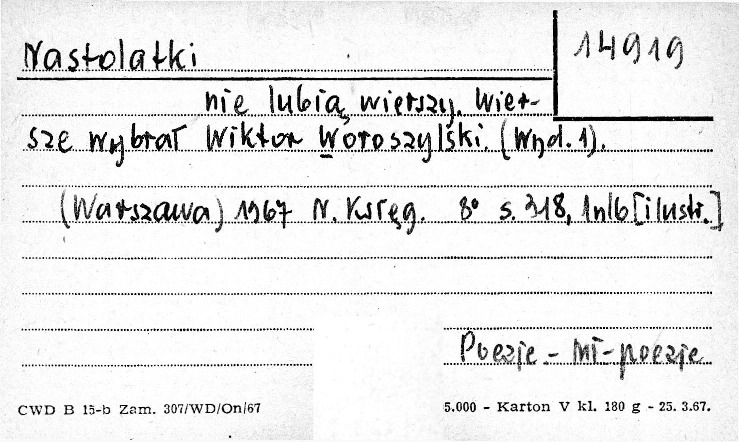 Nastolatki
14919
nie lubią wierszy. Wier-
sze wybrał Wiktor Woroszylski. (Wyd. 1).
(Warszawa) 1967 N. Księg. 8° s. 318, 1nlb [ilustr.]
Poezje - mł-poezje
CWD B 15-b Zam. 307/WD/On/67
5.000 - Karton V kl. 180 g - 25. 3.67.